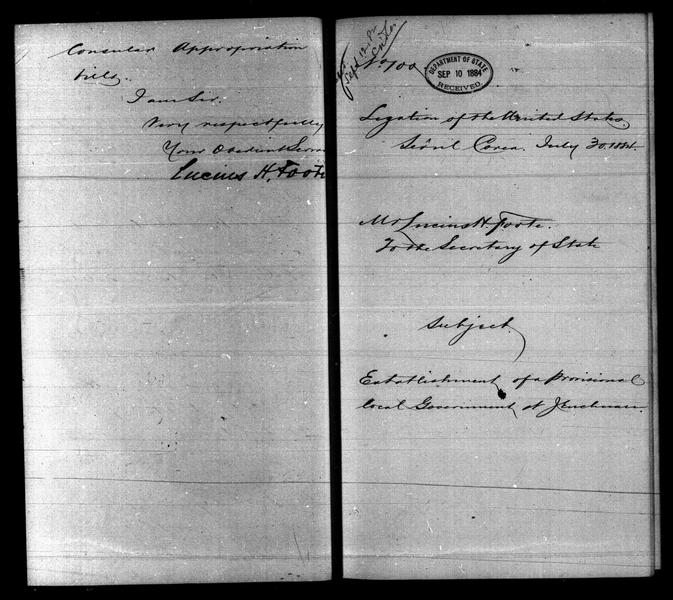 Consular Appropriation
bill.
I am Sir.
Very respectfully
Your Obedient Serva
Lucius H. Foote
Sept 12
No 100
DEPARTMENT OF STATE
SEP 10 1884
RECEIVED
Legation of the United States.
Seoul Corea. July 30. 1884.
Mr Lucius H. Foote.
To the Secretary of State
Subject
Establishment of a Provisional
local Government at Jenchuan.